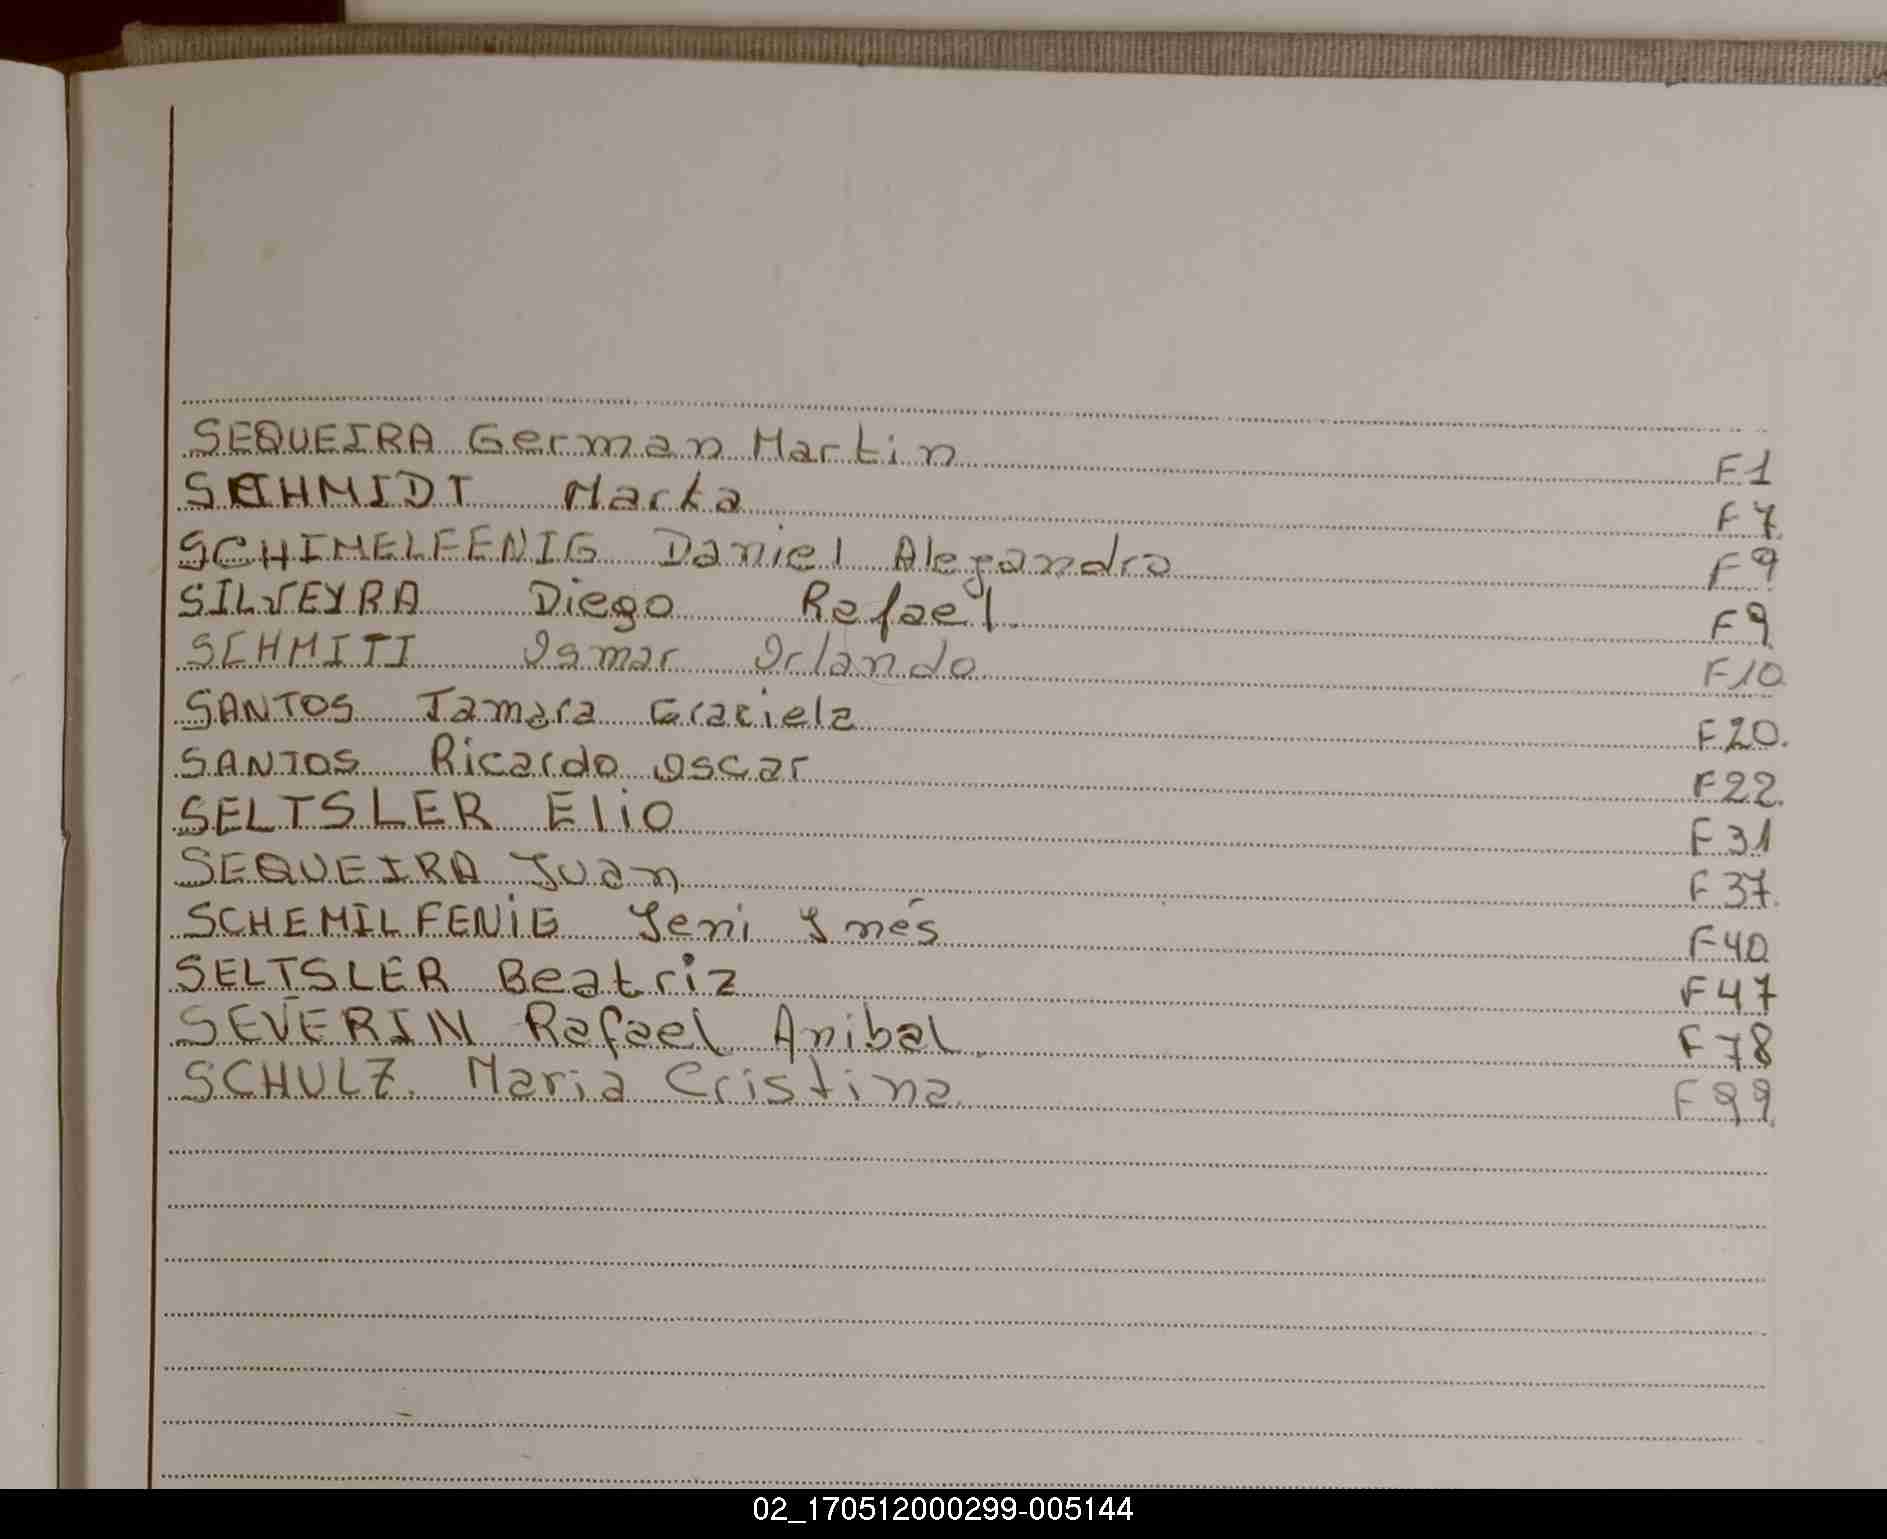 SEQUEIRA German Martin F1
SCHMIDT Marta F7
SCHIMELFENIG Daniel Alejandro F9
SILVEYRA Diego Rafael F9
SCHMITT Ismar Orlando F10
SANTOS Tamara Graciela F20
SANTOS Ricardo Oscar F22
SELTSLER Elio F31
SEQUEIRA Juan F37
SCHEMILFENIG Yeni Ynés F40
SELTSLER Beatriz F47
SEVERIN Rafael Anibal F78
SCHULZ. Maria Cristina F99
02_170512000299-005144